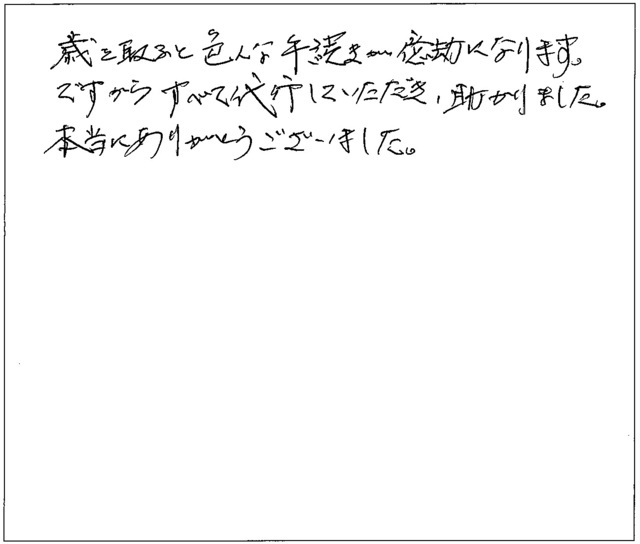 歳を取ると色んな手続きが億劫になります。
ですからすべて代行していただき、助かりました。
本当にありがとうございました。